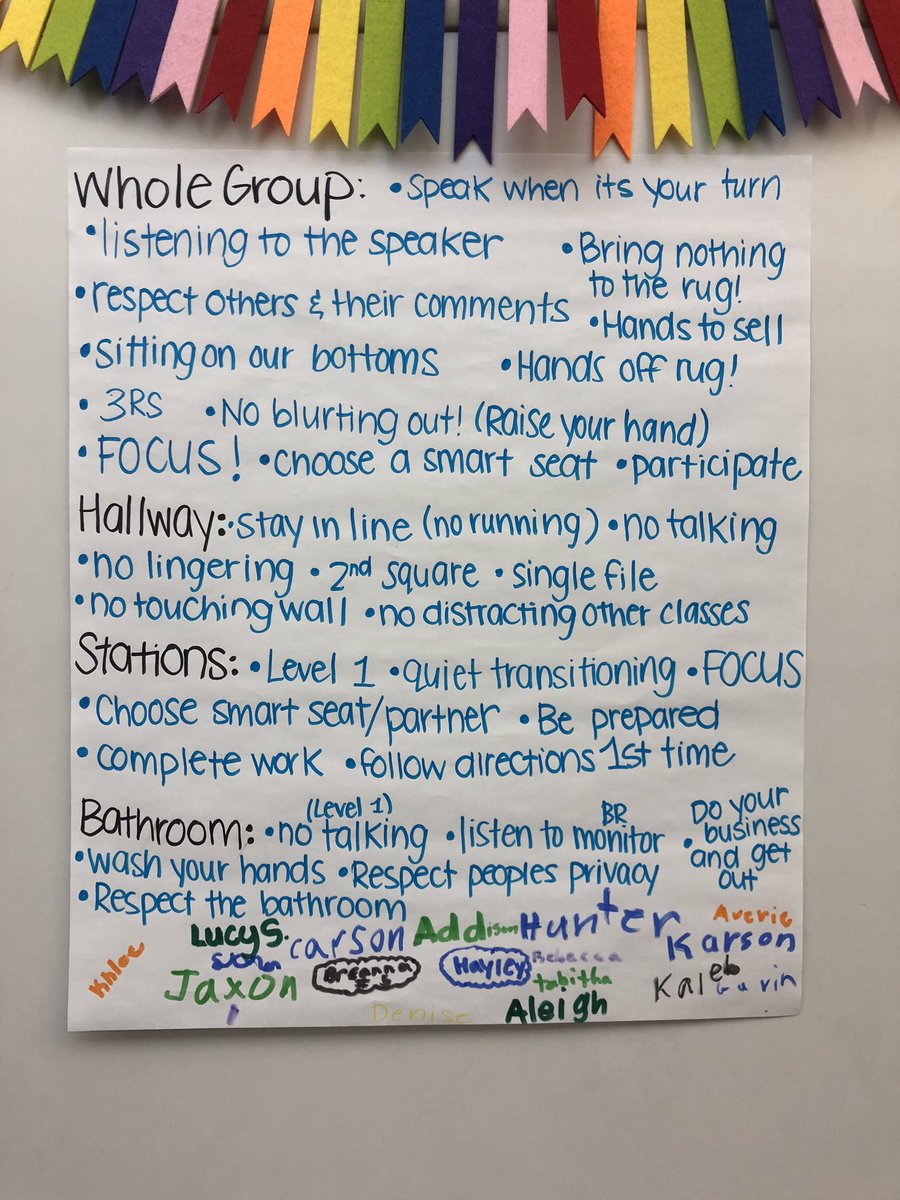 Whole Group: •Speak when its your turn
•listening to the speaker
•Bring nothing
to the rug!
•respect others & their comments
•Hands to sell
•sitting on our bottoms •Hands off rug!
•3RS •No blurting out! (Raise your hand)
•FOCUS! •choose a smart seat •participate
Hallway: •stay in line (no running) •no talking
•no lingering •2nd square •single file
•no touching wall •no distracting other classes
Stations: •Level 1 •quiet transitioning •FOCUS
•Choose smart seat/partner •Be prepared
•complete work •follow directions 1st time
(Level 1)
Bathroom: •no talking •listen to BR monitor
•Do your
business
and get
out
•wash your hands •Respect peoples privacy
•Respect the bathroom
Lucy S. Carson Addison Hunter Averie
Khloe Breanna Hayley Rebecca Karson
Jaxon tabitha Kaleb Gavin
Denise Aleigh